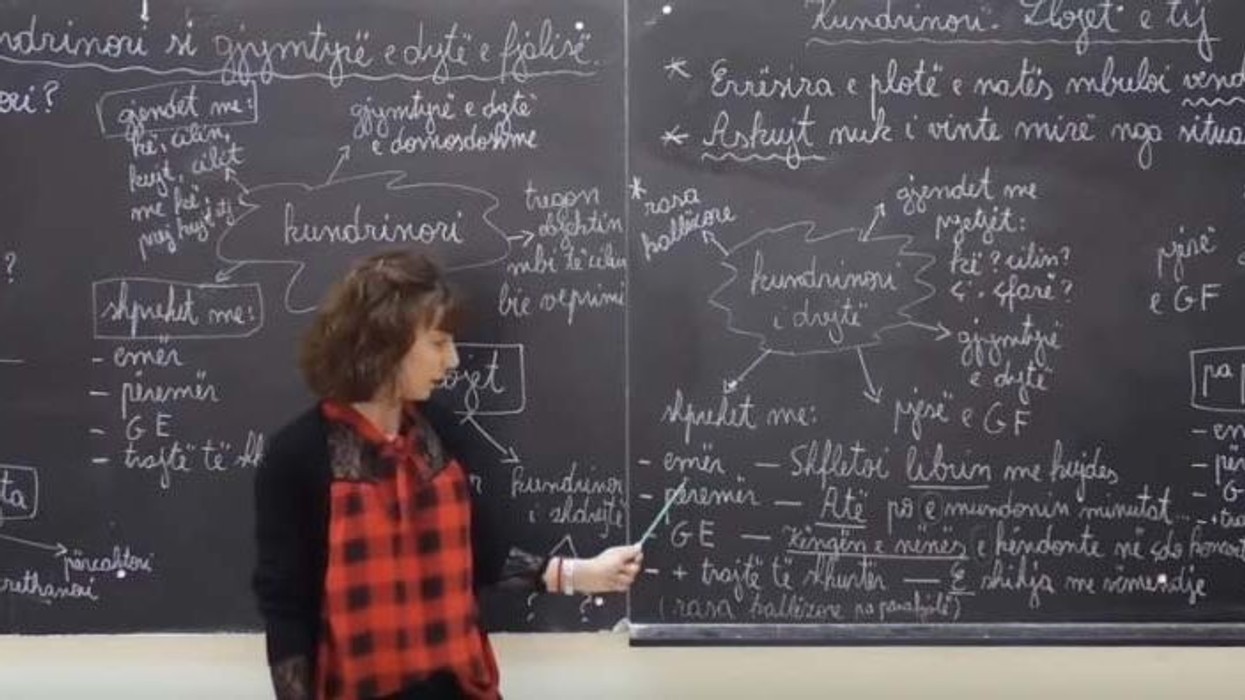 ndrinori si gjymtyrë e dytë e fjalisë.
ori?
gjendet me:
kë, cilin,
kujt, cilit
me kë
prej kujt etj
gjymtyrë e dytë
e domosdoshme
kundrinori
tregon
objektin
mbi të cilin
bie veprimi
?
shprehet me:
- emër
- përemër
- GE
- trajtë të sh
ojet
kundrinor
i zhdrejtë
? ?
ta
përcaktori
rrethanori
Kundrinori. Llojet e tij
* Errësira e plotë e natës mbuloi vend
* Askujt nuk i vinte mirë nga situa
* rasa
kallëzore
gjendet me
pyetjet:
kë? cilin?
ç', çfarë?
kundrinori
i drejtë
gjymtyrë
e dytë
pjesë e GF
shprehet me:
- emër — Shfletoi librin me kujdes
- përemër — Atë po e mundonin minutat...
- GE — Këngën e nënës e këndonte në çdo koncert
- + trajtë të shkurtër — E shihja me vëmendje
(rasa kallëzore pa parafjalë)
pjesë
e GF
pa p
- em
- për
- G
- + tra